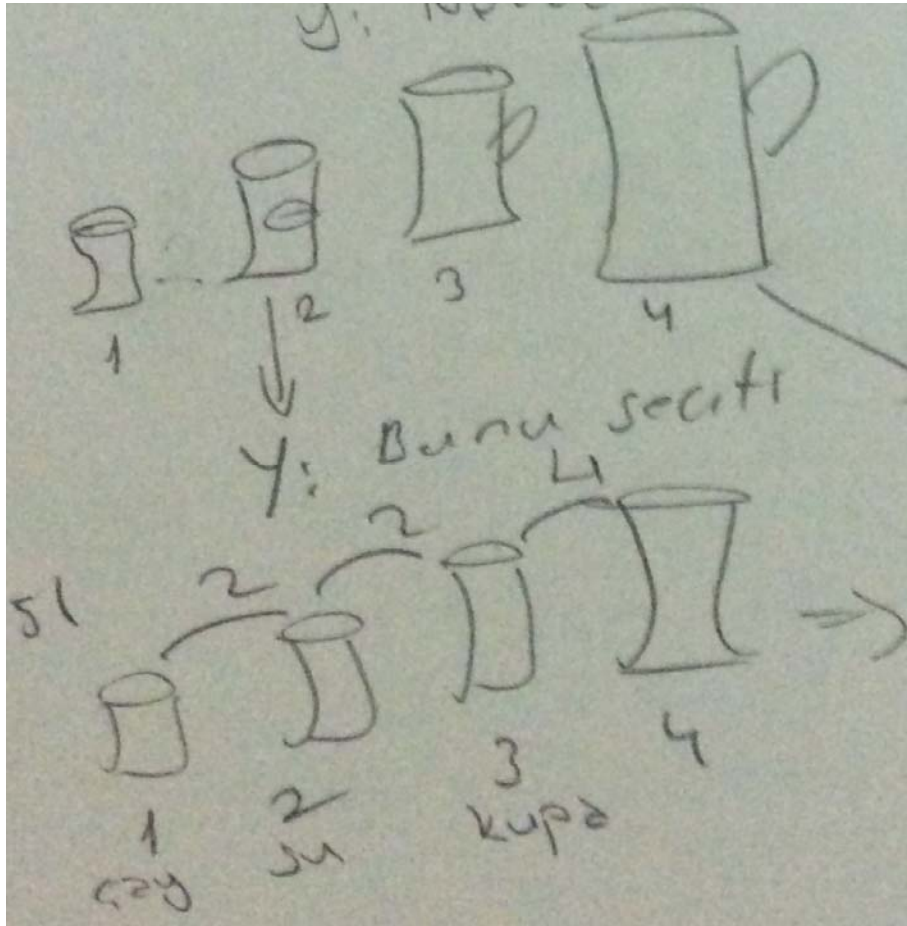 y:
1 2 3 4
Y: Bunu seçti
2 2 4
sl
1 2 3 4
çay su kupa